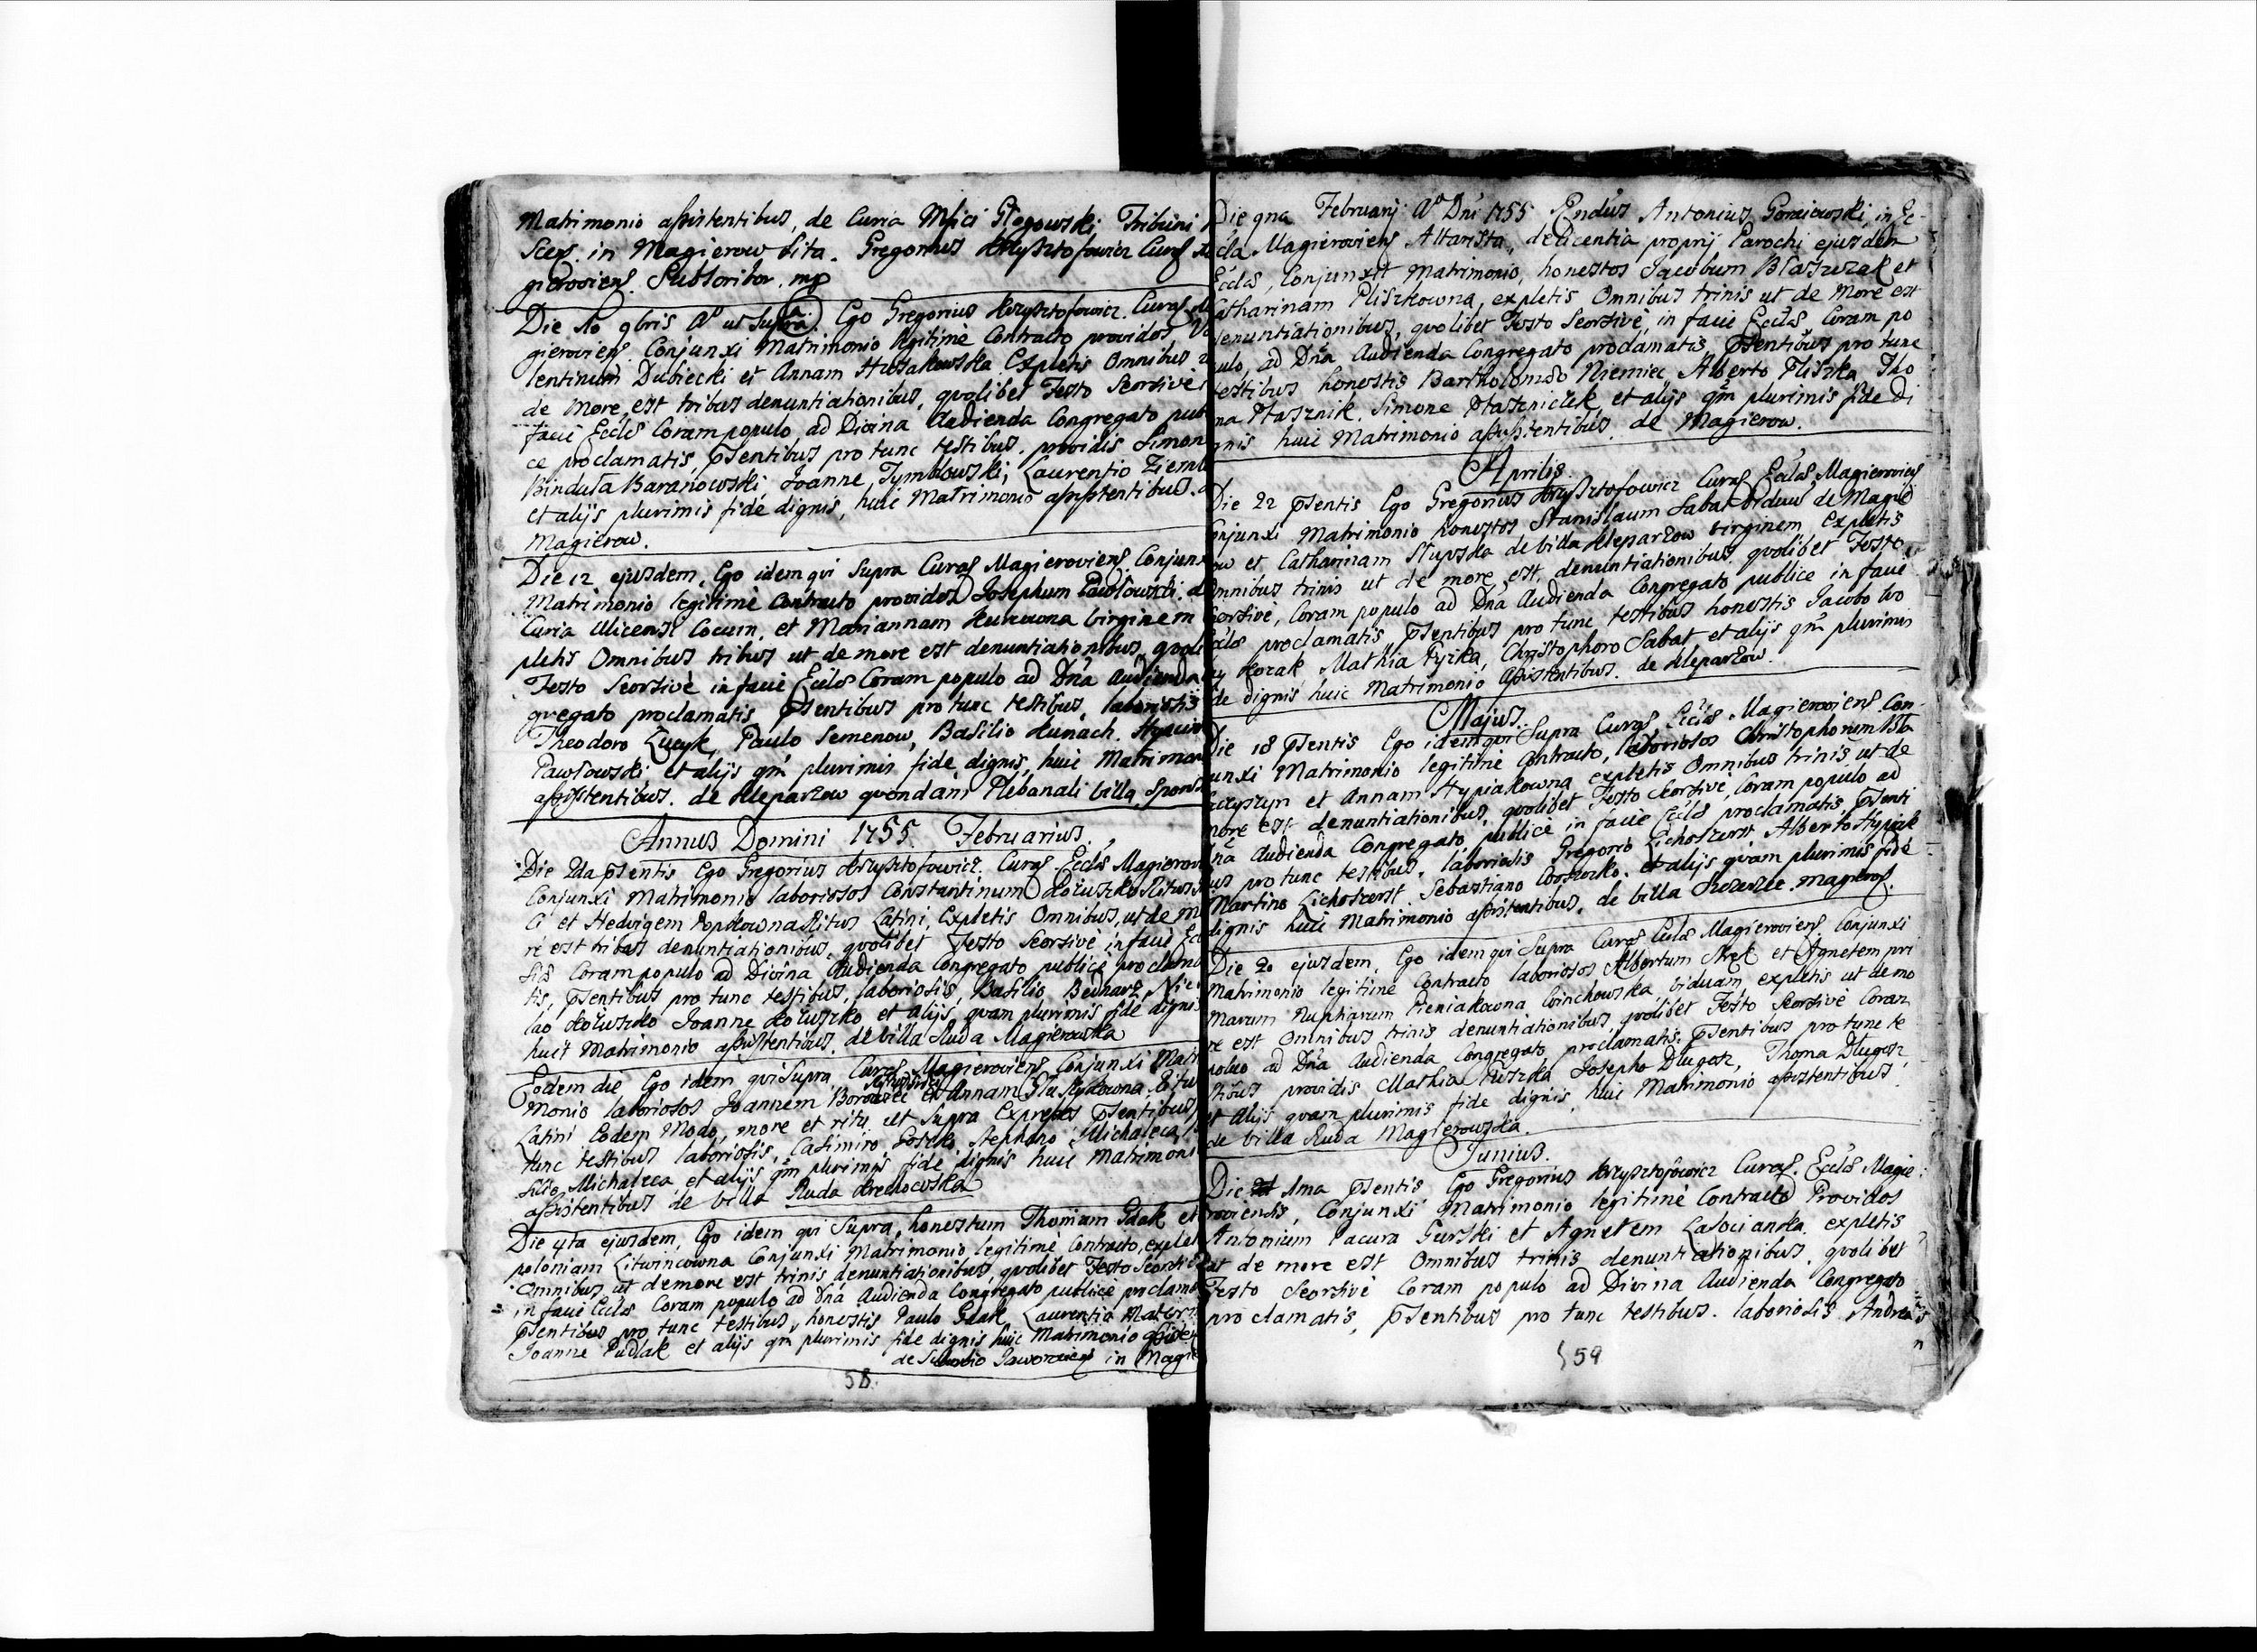 Matrimonio assistentibus, de Curia Mfici Głogowski Tribuni
in Magierow sita. Gregorius Krysztofowicz Curaf
gieroviens. Subscribor. mp
Die 10 9bris Ao ut Supra. Ego Gregorius Krysztofowicz Curaf
gieroviens. Conjunxi Matrimonio legitime Contracto providos Va
lentinum Dubiecki et Annam Expletis Omnibus
de More est tribus denuntiationibus, quolibet Festo Seorsive
facie Eccls Coram populo ad Divina Audienda Congregato
ce proclamatis, Psentibus pro tunc testibus. providis Simon
Binduła Baranowski, Joanne Tymblowski, Laurentio
et alijs plurimis fide dignis, huic Matrimonio assistentibus.
Magierow.
Die 12 ejusdem, Ego idem qui Supra Curaf Magieroviens. Conjun
Matrimonio legitime Contracto providos Josephum Pawłowski.
Curia Ulicensi Cocum, et Mariannam virginem
pletis Omnibus tribus ut de more est denuntiationibus, quoli
Festo Seorsive in facie Eccls Coram populo ad Dna Audienda
gregato proclamatis Psentibus pro tunc testibus, laboriosis
Theodoro Łucyk, Paulo Semenow, Basilio Hunach.
Pawłowski, et alijs qm plurimis fide dignis, huic Matrimon
assistentibus. de Kleparzow quondam Plebanali villa
Annus Domini 1755. Februarius.
Die 2da Psentis Ego Gregorius Krysztofowicz. Curaf. Eccls Magierov
Conjunxi Matrimonio laboriosos Constantinum Kołuszko Ritus
ci et Hedvigem Popkowna Ritus Latini, Expletis Omnibus, ut de mo
re est tribus denuntiationibus, quolibet Festo Seorsive in facie Ec
sis Coram populo ad Divina Audienda Congregato publice proclama
tis, Psentibus pro tunc testibus, laboriosis, Basilio Bednarz, Nico
lao Kołuszko Joanne Kołuszko et alijs, quam plurimis fide dignis
huic Matrimonio assistentibus, de villa Ruda Magierowska
Eodem die Ego idem qui Supra, Curaf Magieroviens Conjunxi Matri
monio laboriosos Joannem et Annam Ritus
Latini Eodem Modo, more et ritu ut Supra Expresso Psentibus
tunc testibus laboriosis, Casimiro Stephano Michalcca
filio Michalcca et alijs qm plurimis fide dignis huic Matrimoni
assistentibus de villa Ruda
Die 4ta ejusdem, Ego idem qui Supra, honestum Thomam Gdak et
poloniam Litwincowna Conjunxi Matrimonio, legitime Contracto, exple
Omnibus ut de more est trinis denuntiationibus, quolibet Festo Seorsive
in facie Eccls Coram populo ad Dna Audienda Congregato publice proclama
Psentibus pro tunc testibus, honestis Paulo Gdak Laurentio
Joanne Pudlak et alijs qm plurimis fide dignis huic Matrimonio assisten
de Suburbio in Magie
58.
Die qna Februarij Ao Dni 1755 Rndus Antonius in Ec-
cla Magieroviens Altarista, de licentia proprij Parochi ejusdem
Eccls, Conjunxit Matrimonio, honestos Jacobum Błaszczak et
Catharinam Pliszkowna, expletis Omnibus trinis ut de More est
denuntiationibus, quolibet Festo Seorsive, in facie Eccls Coram po
pulo, ad Dna Audienda Congregato proclamatis, Psentibus pro tunc
testibus honestis Bartholomeo Niemiec, Alberto Pliszka Tho
ma Ptasznik. Simone Ptaszniczek, et alijs qm plurimis fide di
gnis huic Matrimonio assistentibus. de Magierow.
Aprilis.
Die 22 Psentis Ego Gregorius Krysztofowicz Curaf Eccls Magieroviens
Conjunxi Matrimonio honestos Stanislaum Sabat viduum de Magie
row et Catharinam Słupska de villa Kleparzow virginem, Expletis
Omnibus trinis ut de more est, denuntiationibus, quolibet Festo
Seorsive, Coram populo ad Dna Audienda Congregato publice in facie
Eccls proclamatis, Psentibus pro tunc testibus honestis Jacobo
Kozak Mathia Christophoro Sabat et alijs qm plurimis
de dignis huic Matrimonio assistentibus. de Kleparzow.
Majus.
Die 18 Psentis Ego idem qui Supra Curaf Eccls Magieroviens Con-
junxi Matrimonio legitime Contracto, laboriosos Christophorum
et Annam Hypiakowna expletis Omnibus trinis, ut de
more est denuntiationibus, quolibet Festo Seorsive, Coram populo ad
Dna Audienda Congregato, publice in facie Eccls proclamatis, Psenti
bus pro tunc testibus, laboriosis Gregorio Lichoszerst Alberto Hypiak
Martino Lichoszerst. Sebastiano et alijs quam plurimis fide
dignis huic Matrimonio assistentibus, de villa
Die 20 ejusdem, Ego idem qui Supra Curaf Eccls Magieroviens. Conjunxi
Matrimonio legitime Contracto laboriosos Albertum et Agnetem pri
marum Nuptiarum Pieniakowna viduam, expletis ut de mo
re est Omnibus trinis denuntiationibus, quolibet Festo Seorsive Coram
polulo ad Dna Audienda Congregato, proclamatis, Psentibus pro tunc te
stibus providis Mathia Josepho Długosz, Thoma Długosz
et Alijs quam plurimis fide dignis, huic Matrimonio assistentibus
de villa Ruda Magierowska.
Junius.
Die 1ma Psentis, Ego Gregorius Krysztofowicz Curaf. Eccls Magie
roviensis, Conjunxi Matrimonio legitime Contracto Providos
Antonium Pacura Gurski et Agnetem Łasocianka. expletis
ut de more est Omnibus trinis denuntiationibus. quolibet
Festo Seorsive Coram populo ad Divina Audienda Congregato
proclamatis, Psentibus pro tunc testibus. laboriosis Andrea
59